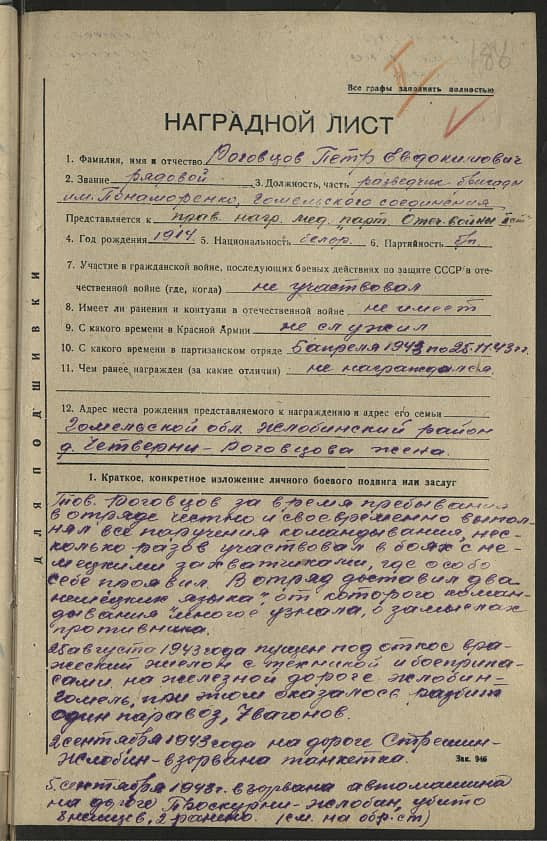 186
Все графы заполнять полностью
НАГРАДНОЙ ЛИСТ
1. Фамилия, имя и отчество Роговцов Петр Евдокимович
2. Звание рядовой 3. Должность, часть разведчик бригады
им. Понаморенко, Гомельского соединения
Представляется к прав. нагр. мед. "парт. Отеч. войны II ст"
4. Год рождения 1914 5. Национальность белор. 6. Партийность б/п.
7. Участие в гражданской войне, последующих боевых действиях по защите СССР и оте-
чественной войне (где, когда) не участвовал
8. Имеет ли ранения и контузии в отечественной войне не имеет
9. С какого времени в Красной Армии не служил
10. С какого времени в партизанском отряде 5 апреля 1943 по 25.11.43 г.
11. Чем ранее награжден (за какие отличия) не награждался
12. Адрес места рождения представляемого к награждению и адрес его семьи
Гомельской обл. Жлобинский район
д. Четверни - Роговцова жена.
1. Краткое, конкретное изложение личного боевого подвига или заслуг
Тов. Роговцов за время пребывания
в отряде честно и своевременно выпол-
нял все поручения командывания, нес-
колько разов участвовал в боях с не-
мецкими захватчиками, где особо
себе проявил. В отряд доставил два
немецких языка" от которого коман-
дывания "многое узнала, о замыслах
противника.
25 августа 1943 года пущен под откос вра-
жеский эшелон с техникой и боеприпа-
сами на железной дороге Жлобин-
Гомель, при этом оказалось разбит
один паравоз, 7 вагонов.
2 сентября 1943 года на дороге Стрешин-
Жлобин - взорвана танкетка.
Зак. 946
5 сентября 1943 г. взорвана автомашина
на дороге Проскурни - Жлобин, убито
8 немцев, 2 ранено. (см. на обр. ст)
ДЛЯ ПОДШИВКИ